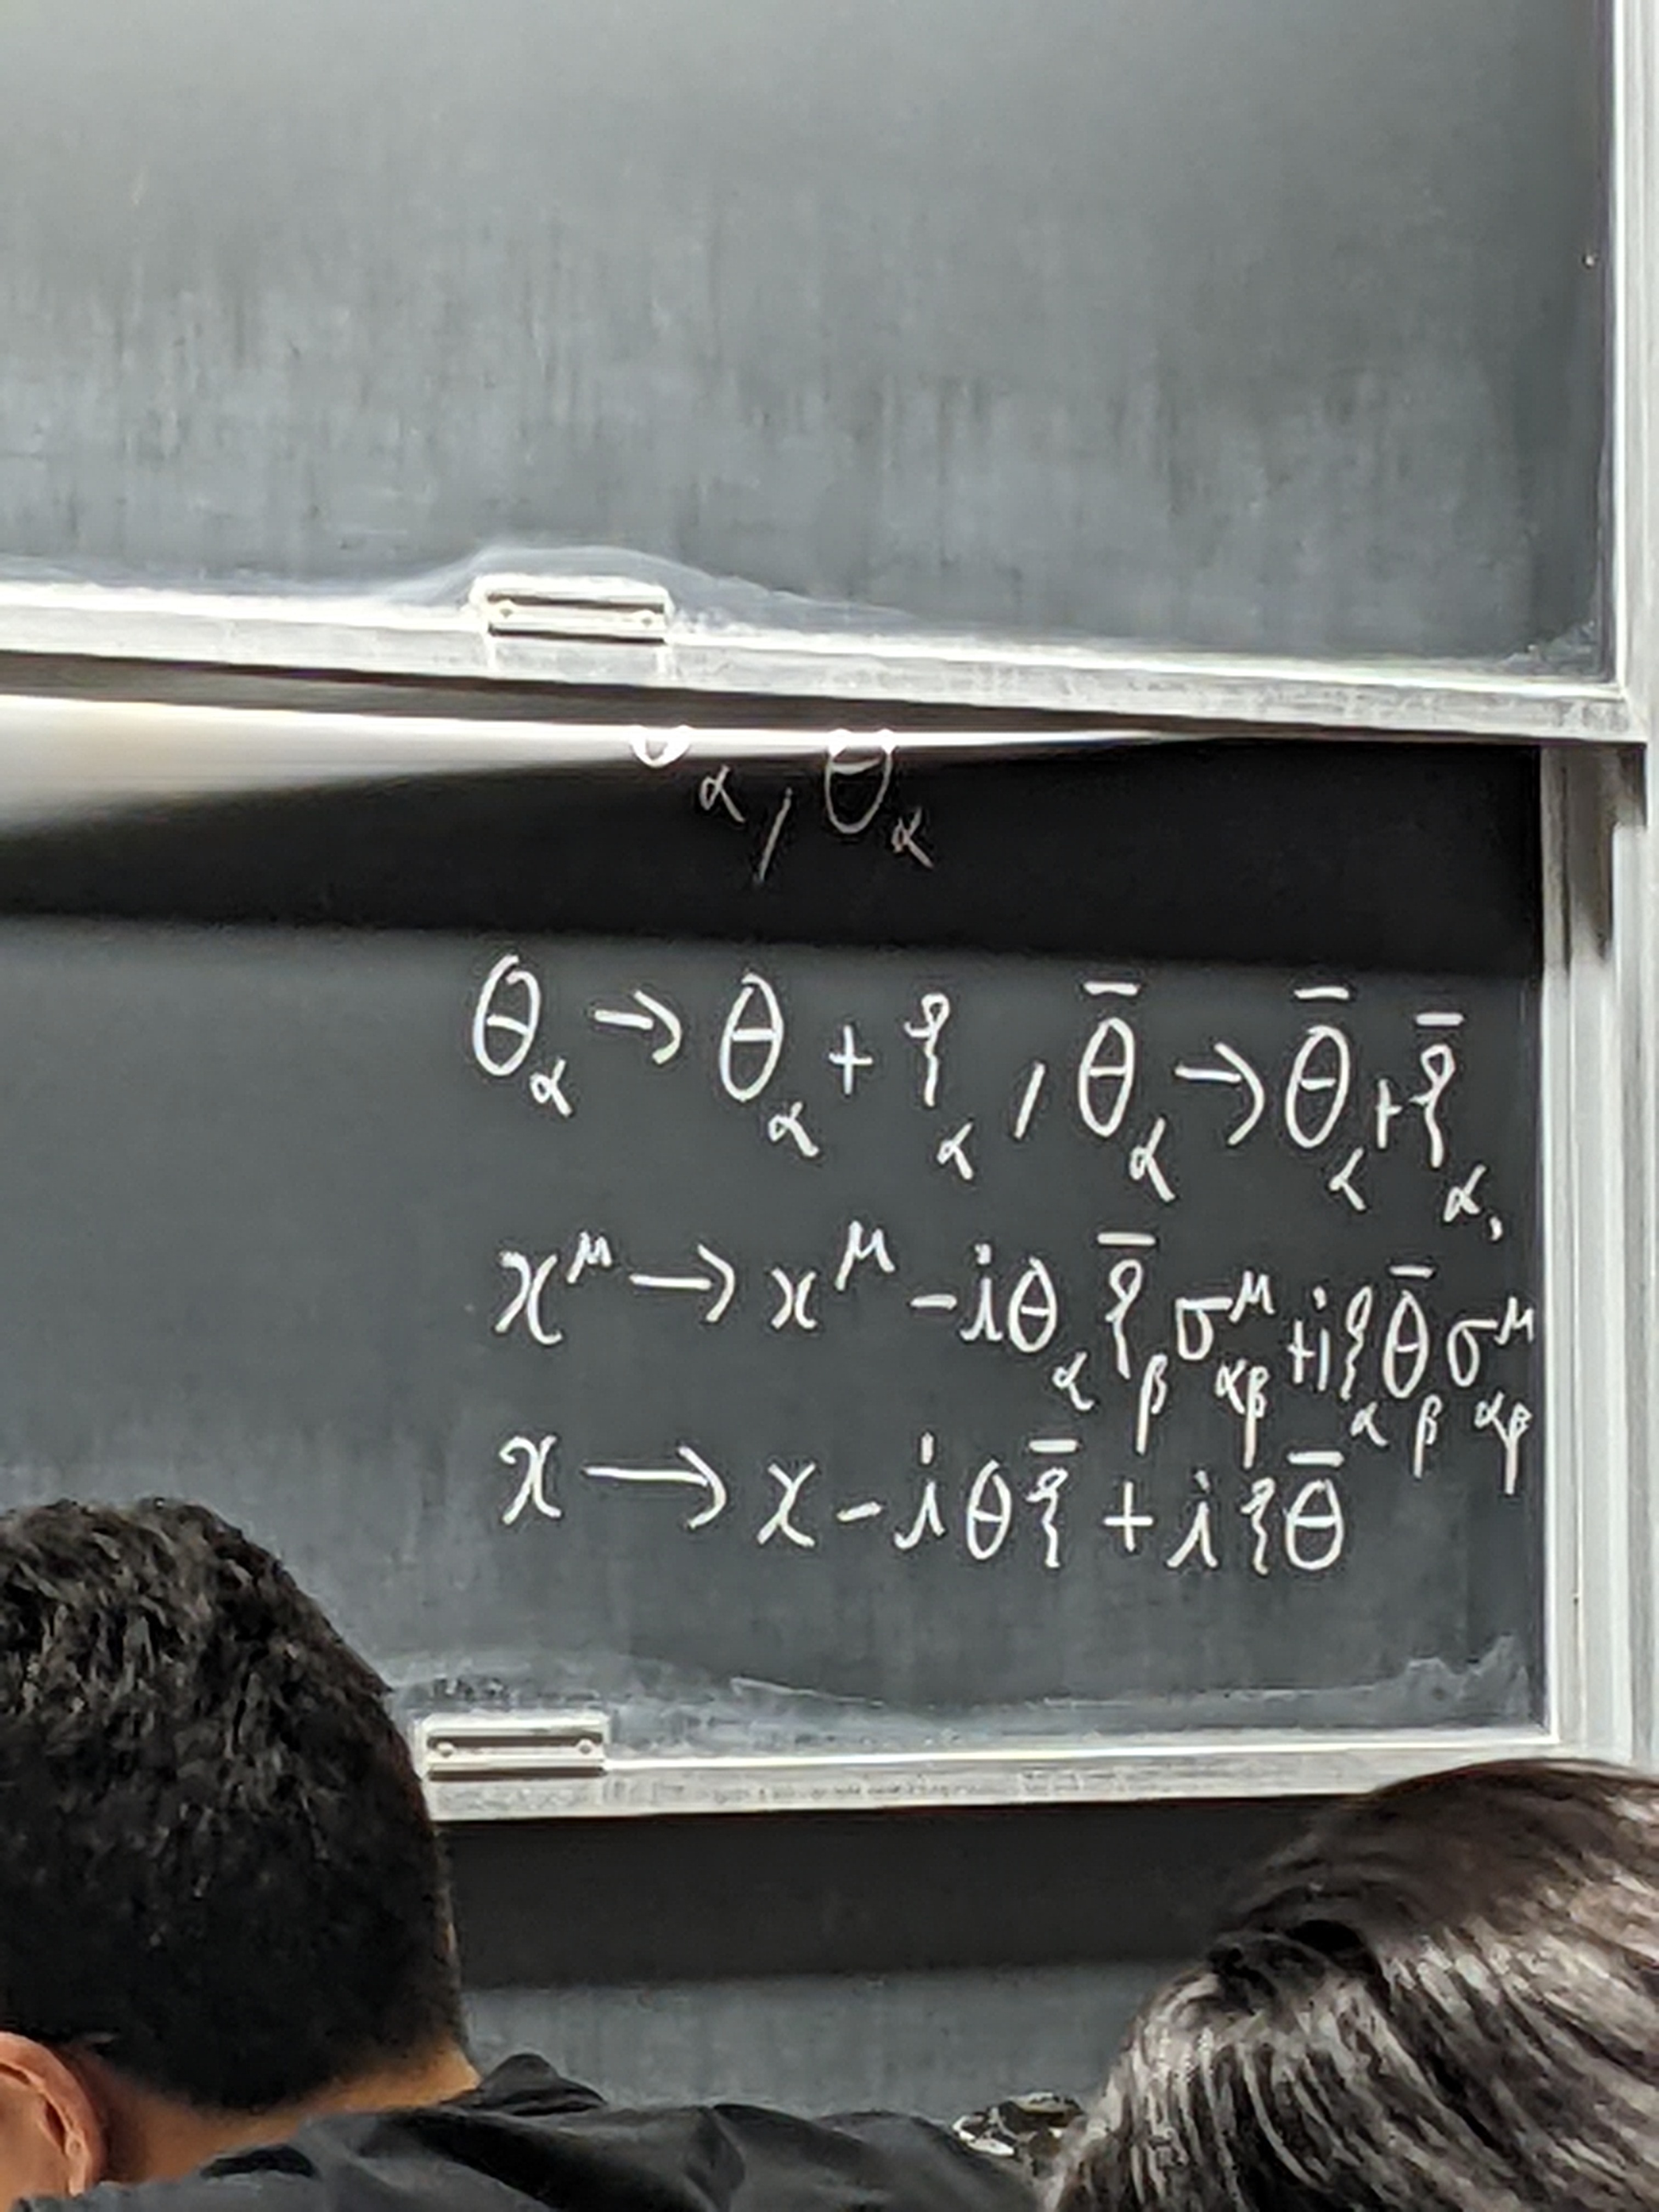 α, θ_α
θ_α → θ_α + ξ_α, θ̄_α → θ̄_α + ξ̄_α,
x^μ → x^μ - iθ_α ξ̄_β σ^μ_αβ + iξ_α θ̄_β σ^μ_αβ
x → x - iθξ̄ + iξθ̄